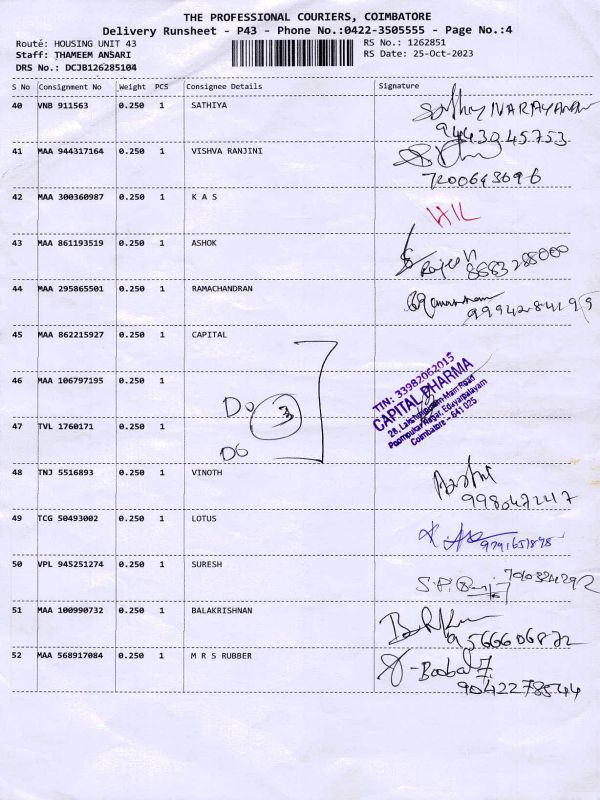 THE PROFESSIONAL COURIERS, COIMBATORE
Delivery Runsheet - P43 - Phone No.:0422-3505555 - Page No.:4
Route: HOUSING UNIT 43
RS No.: 1262851
Staff: THAMEEM ANSARI
RS Date: 25-Oct-2023
DRS No.: DCJB126285104
S No Consignment No Weight PCS Consignee Details Signature
40 VNB 911563 0.250 1 SATHIYA
NARAYANAN
9443045753
41 MAA 944317164 0.250 1 VISHVA RANJINI
7200643696
42 MAA 300360987 0.250 1 K A S
43 MAA 861193519 0.250 1 ASHOK
8883288000
44 MAA 295865501 0.250 1 RAMACHANDRAN
9994284199
45 MAA 862215927 0.250 1 CAPITAL
TIN: 33982062015
CAPITAL PHARMA
28, Lakshmipuram Main Road
Poompukar Nagar, Edayarpalayam
Coimbatore - 641 025
46 MAA 106797195 0.250 1
Do 3
47 TVL 1760171 0.250 1
Do
48 TNJ 5516893 0.250 1 VINOTH
49 TCG 50493002 0.250 1 LOTUS
9791651898
50 VPL 945251274 0.250 1 SURESH
51 MAA 100990732 0.250 1 BALAKRISHNAN
9566606872
52 MAA 568917084 0.250 1 M R S RUBBER
9042278544